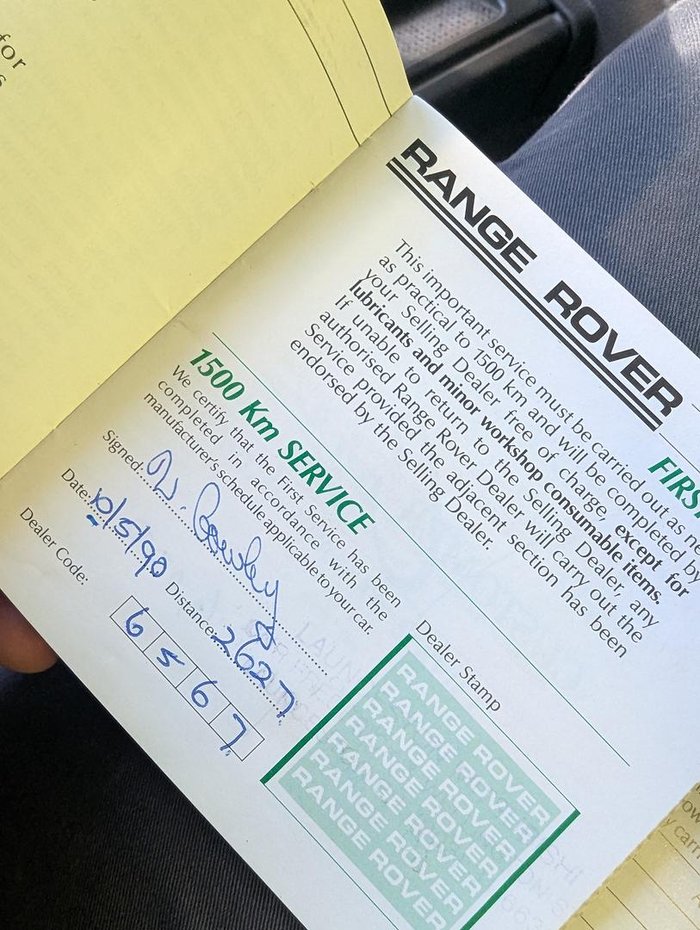 for
RANGE ROVER
FIRST
This important service must be carried out as
as practical to 1500 km and will be completed by
your Selling Dealer free of charge, except for
lubricants and minor workshop consumable items.
If unable to return to the Selling Dealer, any
authorised Range Rover Dealer will carry out the
Service provided the adjacent section has been
endorsed by the Selling Dealer.
1500 Km SERVICE
We certify that the First Service has been
completed in accordance with the
manufacturer's schedule applicable to your car.
Signed
Date 10/5/90 Distance 2627
Dealer Code:
6567
Dealer Stamp
RANGE ROVER
RANGE ROVER
RANGE ROVER
RANGE ROVER
RANGE ROVER
RANGE ROVER